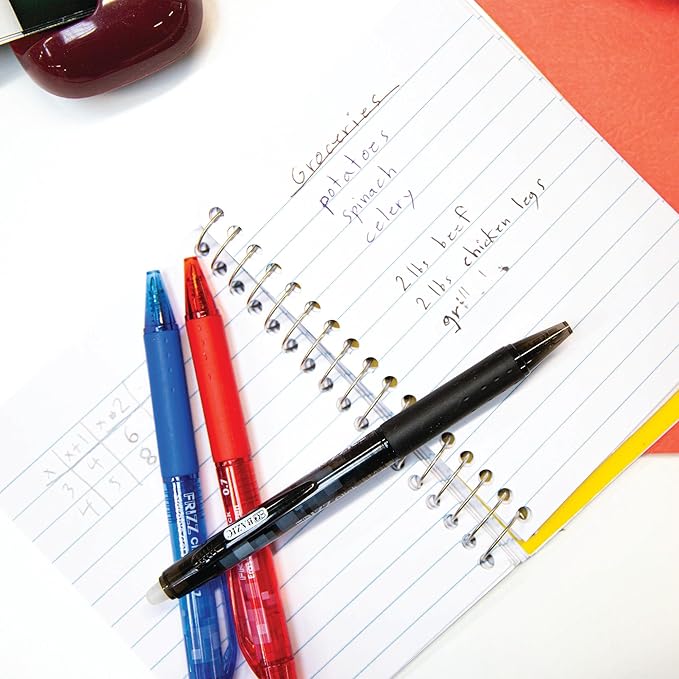 Groceries
potatoes
spinach
celery
2 lbs beef
2 lbs chicken legs
grill!
x | x+1 | x*2
3 | 4 | 6
4 | 5 | 8
FRIZZ
0.7
BAZIC